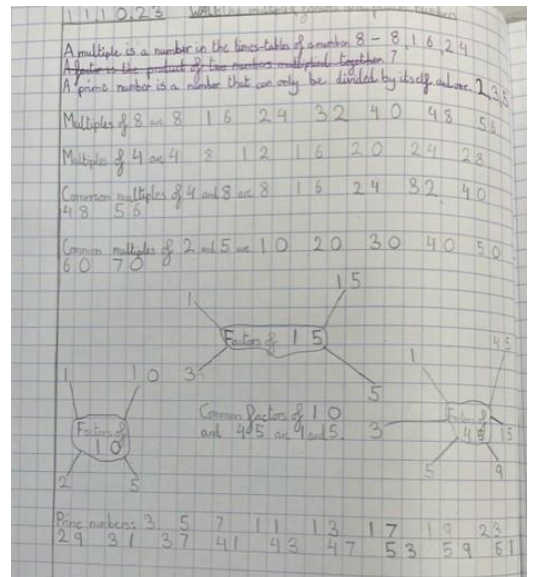 11.10.23
A multiple is a number in the times-tables of a number 8 - 8, 16, 24
A factor is the product of two numbers multiplied together. 7
A prime number is a number that can only be divided by itself and one. 2, 3, 5
Multiples of 8 are 8 16 24 32 40 48 56
Multiples of 4 are 4 8 12 16 20 24 28
Common multiples of 4 and 8 are 8 16 24 32 40
48 56
Common multiples of 2 and 5 are 10 20 30 40 50
60 70
1 15
Factors of 15
3 5
1 10
Factors of
10
2 5
Common factors of 10
and 45 are 1 and 5.
1 45
Factors of
45
3 15
5 9
Prime numbers: 3 5 7 11 13 17 19 23
29 31 37 41 43 47 53 59 61